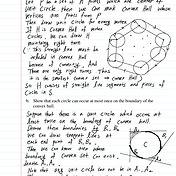 Let P be a set of n points which are center of
unit Circle then we can make Convex Hull whose
vertices are points from P
Then draw unit Circle for every vertex
If H is Convex Hull of vertex
Circles, we can draw H
pointing right turn
( This straight line must be
included in convex hull
because of convexity. And
There are only right turns. Thus
it is the smallest convex set or convex Hull
So H consists of straight line segments and pieces of
Circle in S.
b. Show that each circle can occur at most once on the boundary of the
convex hull.
Suppose that there is a unit circle which occurs at
least twice on the boundary of convex hull.
Denote these boundaries by B₁, B₂
We can draw tangent lines at
each end point of B₁, B₂.
Then we can know area whose
boundary of convex set can exist,
A₁, A₂.
Now that any unit circle can not be in A₁, A₂